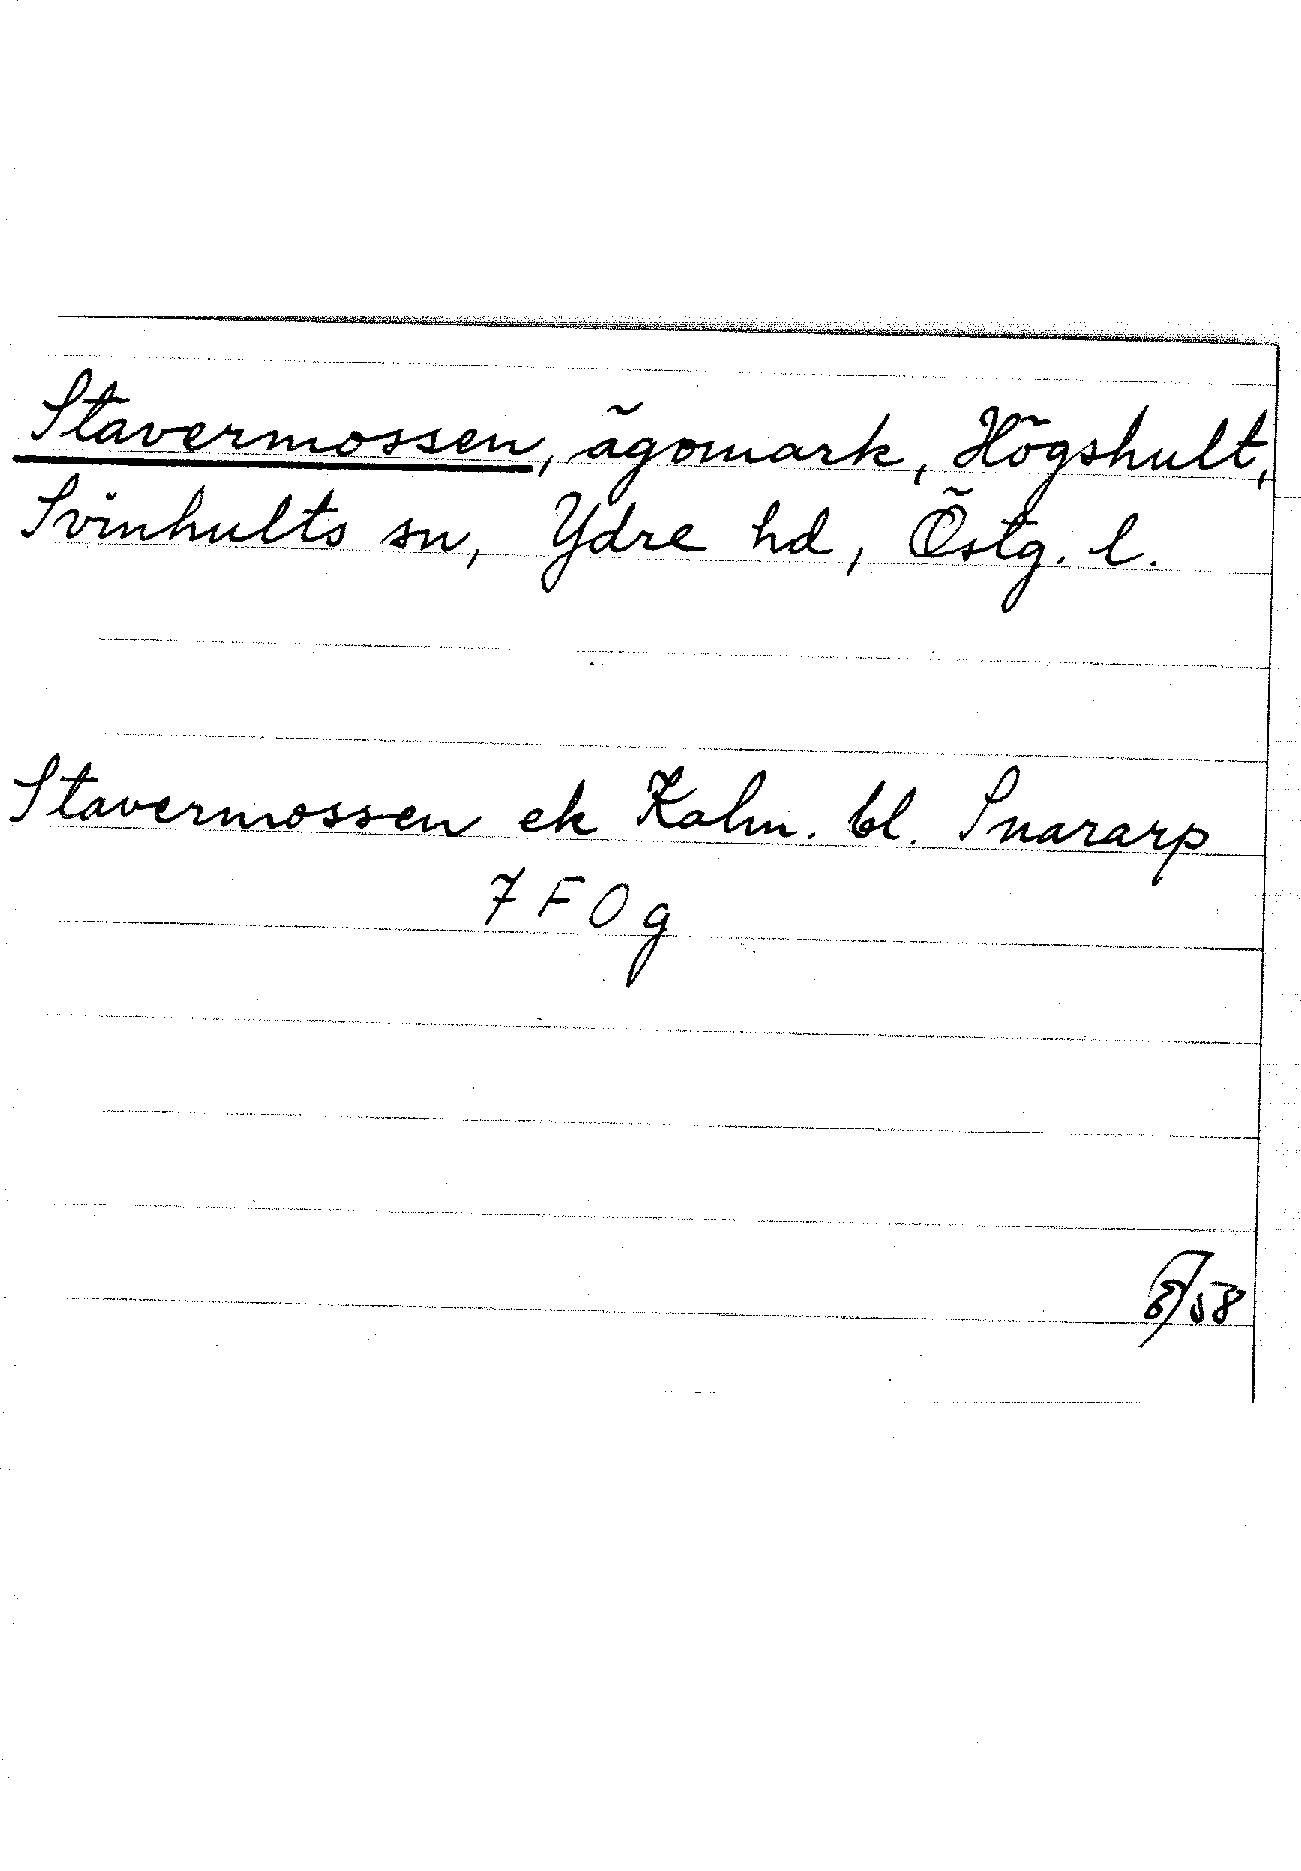 Stavermossen, ägomark, Högshult,
Svinhults sn, Ydre hd, Östg. l.
Stavermossen ek Kalm. bl. Snararp
7 F 0 g